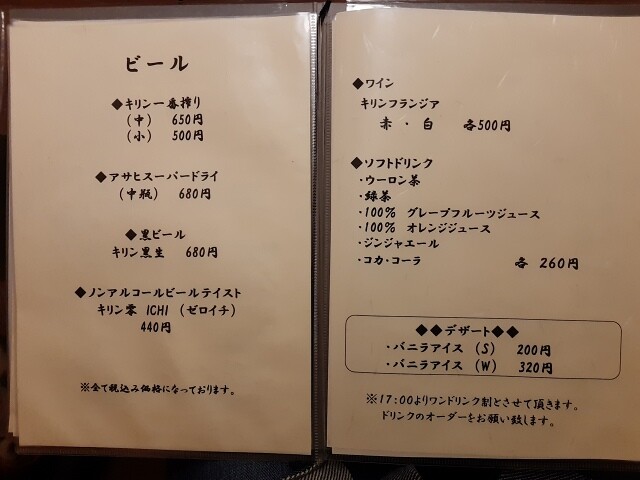 ビール
◆キリン一番搾り
(中) 650円
(小) 500円
◆アサヒスーパードライ
(中瓶) 680円
◆黒ビール
キリン黒生 680円
◆ノンアルコールビールテイスト
キリン零 ICHI (ゼロイチ)
440円
※全て税込み価格になっております。
◆ワイン
キリンフランジア
赤・白 各500円
◆ソフトドリンク
・ウーロン茶
・緑茶
・100% グレープフルーツジュース
・100% オレンジジュース
・ジンジャエール
・コカ・コーラ 各 260円
◆◆デザート◆◆
・バニラアイス (S) 200円
・バニラアイス (W) 320円
※17:00よりワンドリンク制とさせて頂きます。
ドリンクのオーダーをお願い致します。